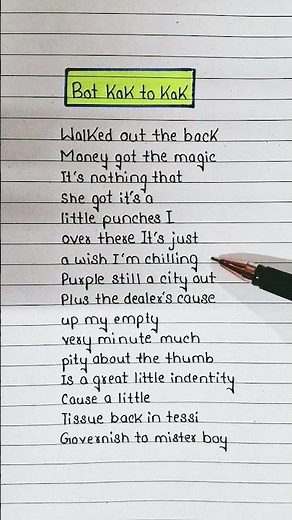 Bot Kak to Kak
Walked out the back
Money got the magic
It's nothing that
she got it's a
little punches I
over there It's just
a wish I'm chilling
Purple still a city out
Plus the dealer's cause
up my empty
very minute much
pity about the thumb
Is a great little indentity
Cause a little
Tissue back in tessi
Governish to mister boy